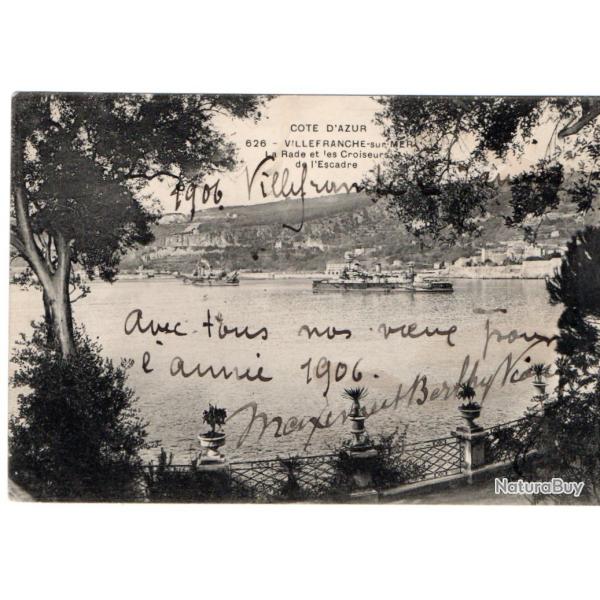 COTE D'AZUR
626 - VILLEFRANCHE-sur-MER
La Rade et les Croiseurs
de l'Escadre
1906 Villefranche
Avec tous nos vœux pour
l'année 1906.
Berthy
NaturaBuy